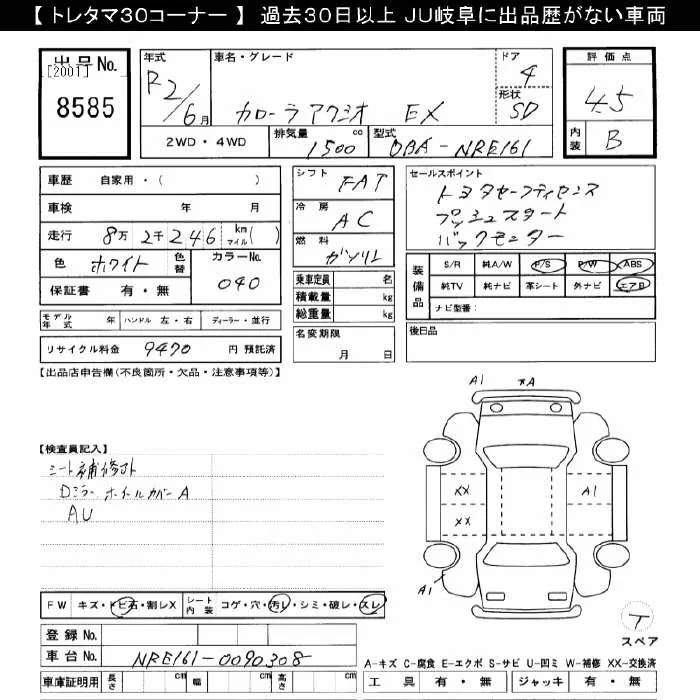 【 トレタマ30コーナー 】 過去30日以上 JU岐阜に出品歴がない車両
出品 No. [2001] 8585
年式 R2/6月
車名・グレード カローラアクシオ EX
ドア 4
形状 SD
評価点 4.5
内装 B
2WD・4WD
排気量 1500 cc
型式 DBA-NRE161
車歴 自家用・( )
車検 年 月
走行 8万 2千 246 km マイル ( )
色 ホワイト 色替
カラーNo. 040
保証書 有・無
シフト FAT
冷房 AC
燃料 ガソリン
乗車定員 名
積載量 kg
総重量 kg
名変期限 月 日
セールスポイント
トヨタセーフティセンス
プッシュスタート
バックモニター
装備品 S/R 純A/W P/S P/W ABS
純TV 純ナビ 革シート 外ナビ エアB
ナビ型番:
モデル年式 年 ハンドル 左・右 ディーラー・並行
リサイクル料金 9470 円 預託済
後日品
【出品店申告欄(不良箇所・欠品・注意事項等)】
【検査員記入】
シート補修跡
Dミラー ホイールカバー A
AU
A1 A
XX A1
XX
A1
T
スペア
FW キズ・トビ石・割レX シート内装 コゲ・穴・汚レ・シミ・破レ・スレ
登録 No.
車台 No. NRE161-0090308
車庫証明用 長さ cm 幅 cm 高さ cm
A-キズ C-腐食 E-エクボ S-サビ U-凹ミ W-補修 XX-交換済
工具 有・無 ジャッキ 有・無